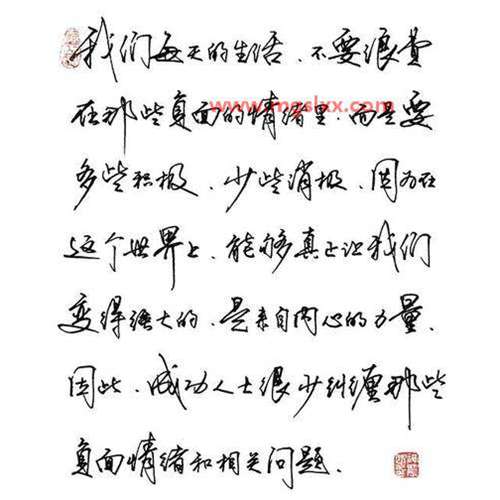 我们每天的生活、不要浪费
在那些负面的情绪里.而是要
多些积极、少些消极、因为在
这个世界上、能够真正让我们
变得强大的、是来自内心的力量、
因此、成功人士很少纠缠那些
负面情绪和相关问题.